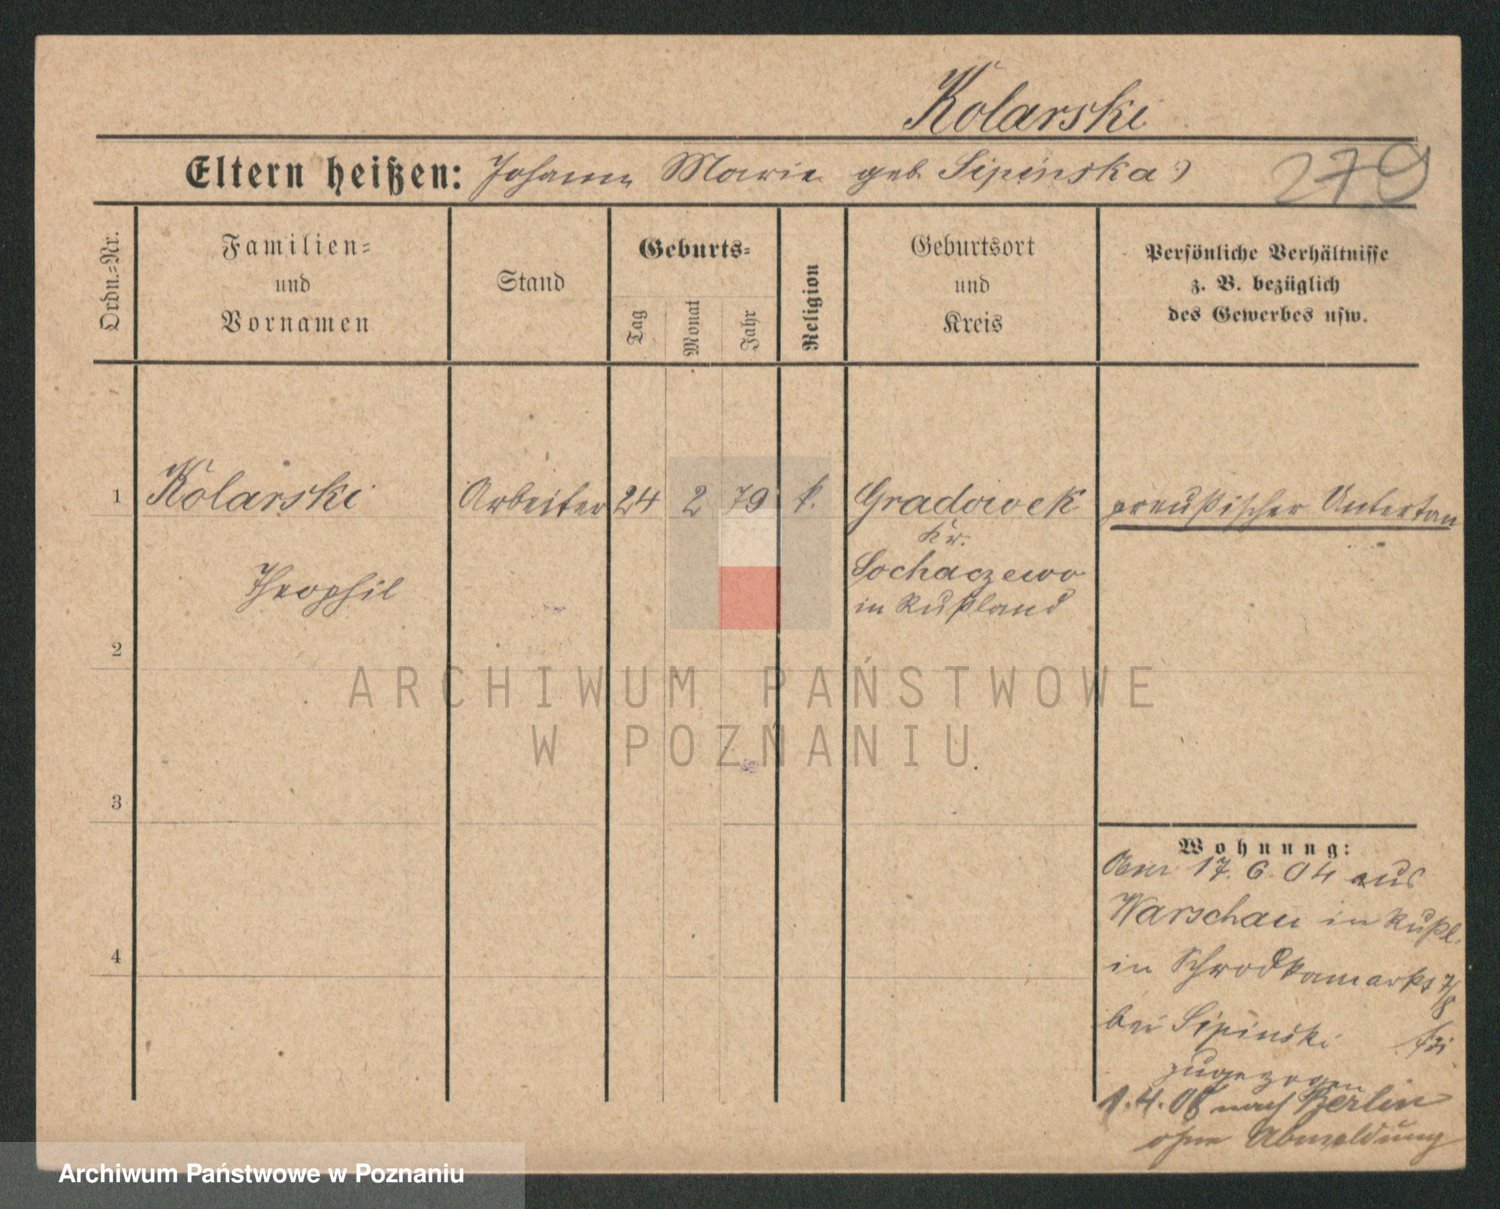 Kolarski
Eltern heißen: Johann Marie geb Sipinska
279
Ordn.=Nr.
Familien=
und
Vornamen
Stand
Geburts=
Tag
Monat
Jahr
Religion
Geburtsort
und
Kreis
Persönliche Verhältnisse
z. B. bezüglich
des Gewerbes usw.
1 Kolarski Arbeiter 24 2 79 k. Gradowek preußischer Untertan
Kr.
Sochaczewo
Theophil
in Rußland
2
3
4
Wohnung:
Am 17. 6. 04 aus
Warschau in Rußl.
in Schrodkamarkt 7/8
bei Sipinski
zugezogen
1. 4. 08 nach Berlin
ohne Abmeldung
ARCHIWUM PAŃSTWOWE
W POZNANIU
Archiwum Państwowe w Poznaniu